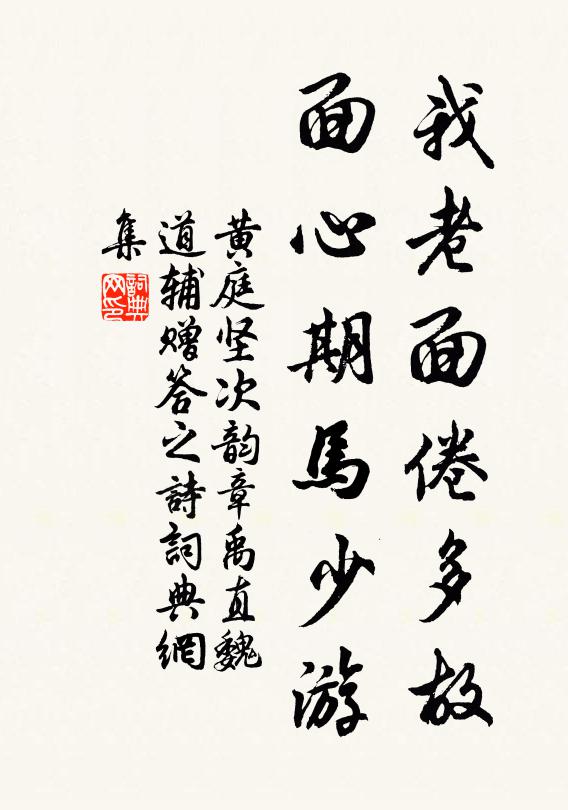 我老面倦多故
面心期馬少游
黄庭坚次韵章禹直魏
道辅赠答之詩詞典網
集
詞典
网印